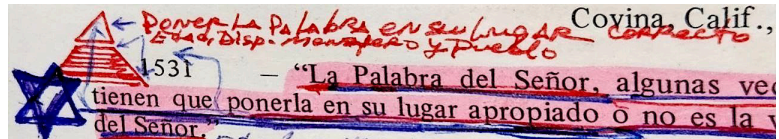 PONER LA PALABRA EN SU LUGAR CORRECTO
Covina, Calif.,
EDAD, DISP. MENSAJERO Y PUEBLO
1531 – “La Palabra del Señor, algunas vec
tienen que ponerla en su lugar apropiado o no es la
del Señor.”